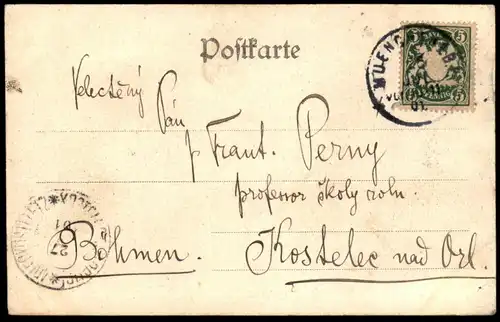 Postkarte
5 5
MUENCHEN
5 5
Velectěný
Pán
p Frant. Perny
professor školy roln.
27
01
Böhmen. Kostelec nad Orl.